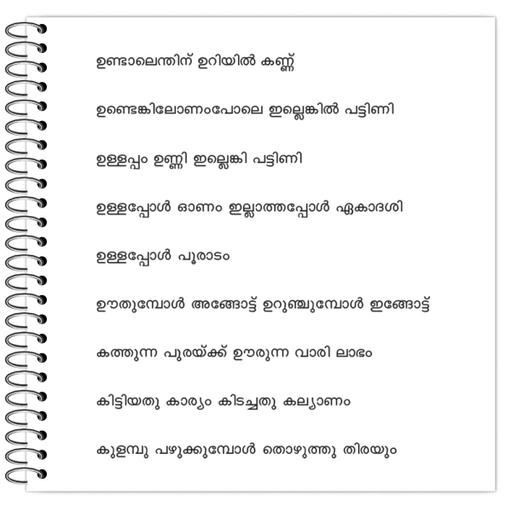 ഉണ്ടാലെന്തിന് ഉറിയിൽ കണ്ണ്
ഉണ്ടെങ്കിലോണംപോലെ ഇല്ലെങ്കിൽ പട്ടിണി
ഉള്ളപ്പം ഉണ്ണി ഇല്ലെങ്കി പട്ടിണി
ഉള്ളപ്പോൾ ഓണം ഇല്ലാത്തപ്പോൾ ഏകാദശി
ഉള്ളപ്പോൾ പൂരാടം
ഊതുമ്പോൾ അങ്ങോട്ട് ഉറുഞ്ചുമ്പോൾ ഇങ്ങോട്ട്
കത്തുന്ന പുരയ്ക്ക് ഊരുന്ന വാരി ലാഭം
കിട്ടിയതു കാര്യം കിടച്ചതു കല്യാണം
കുളമ്പു പഴുക്കുമ്പോൾ തൊഴുത്തു തിരയും